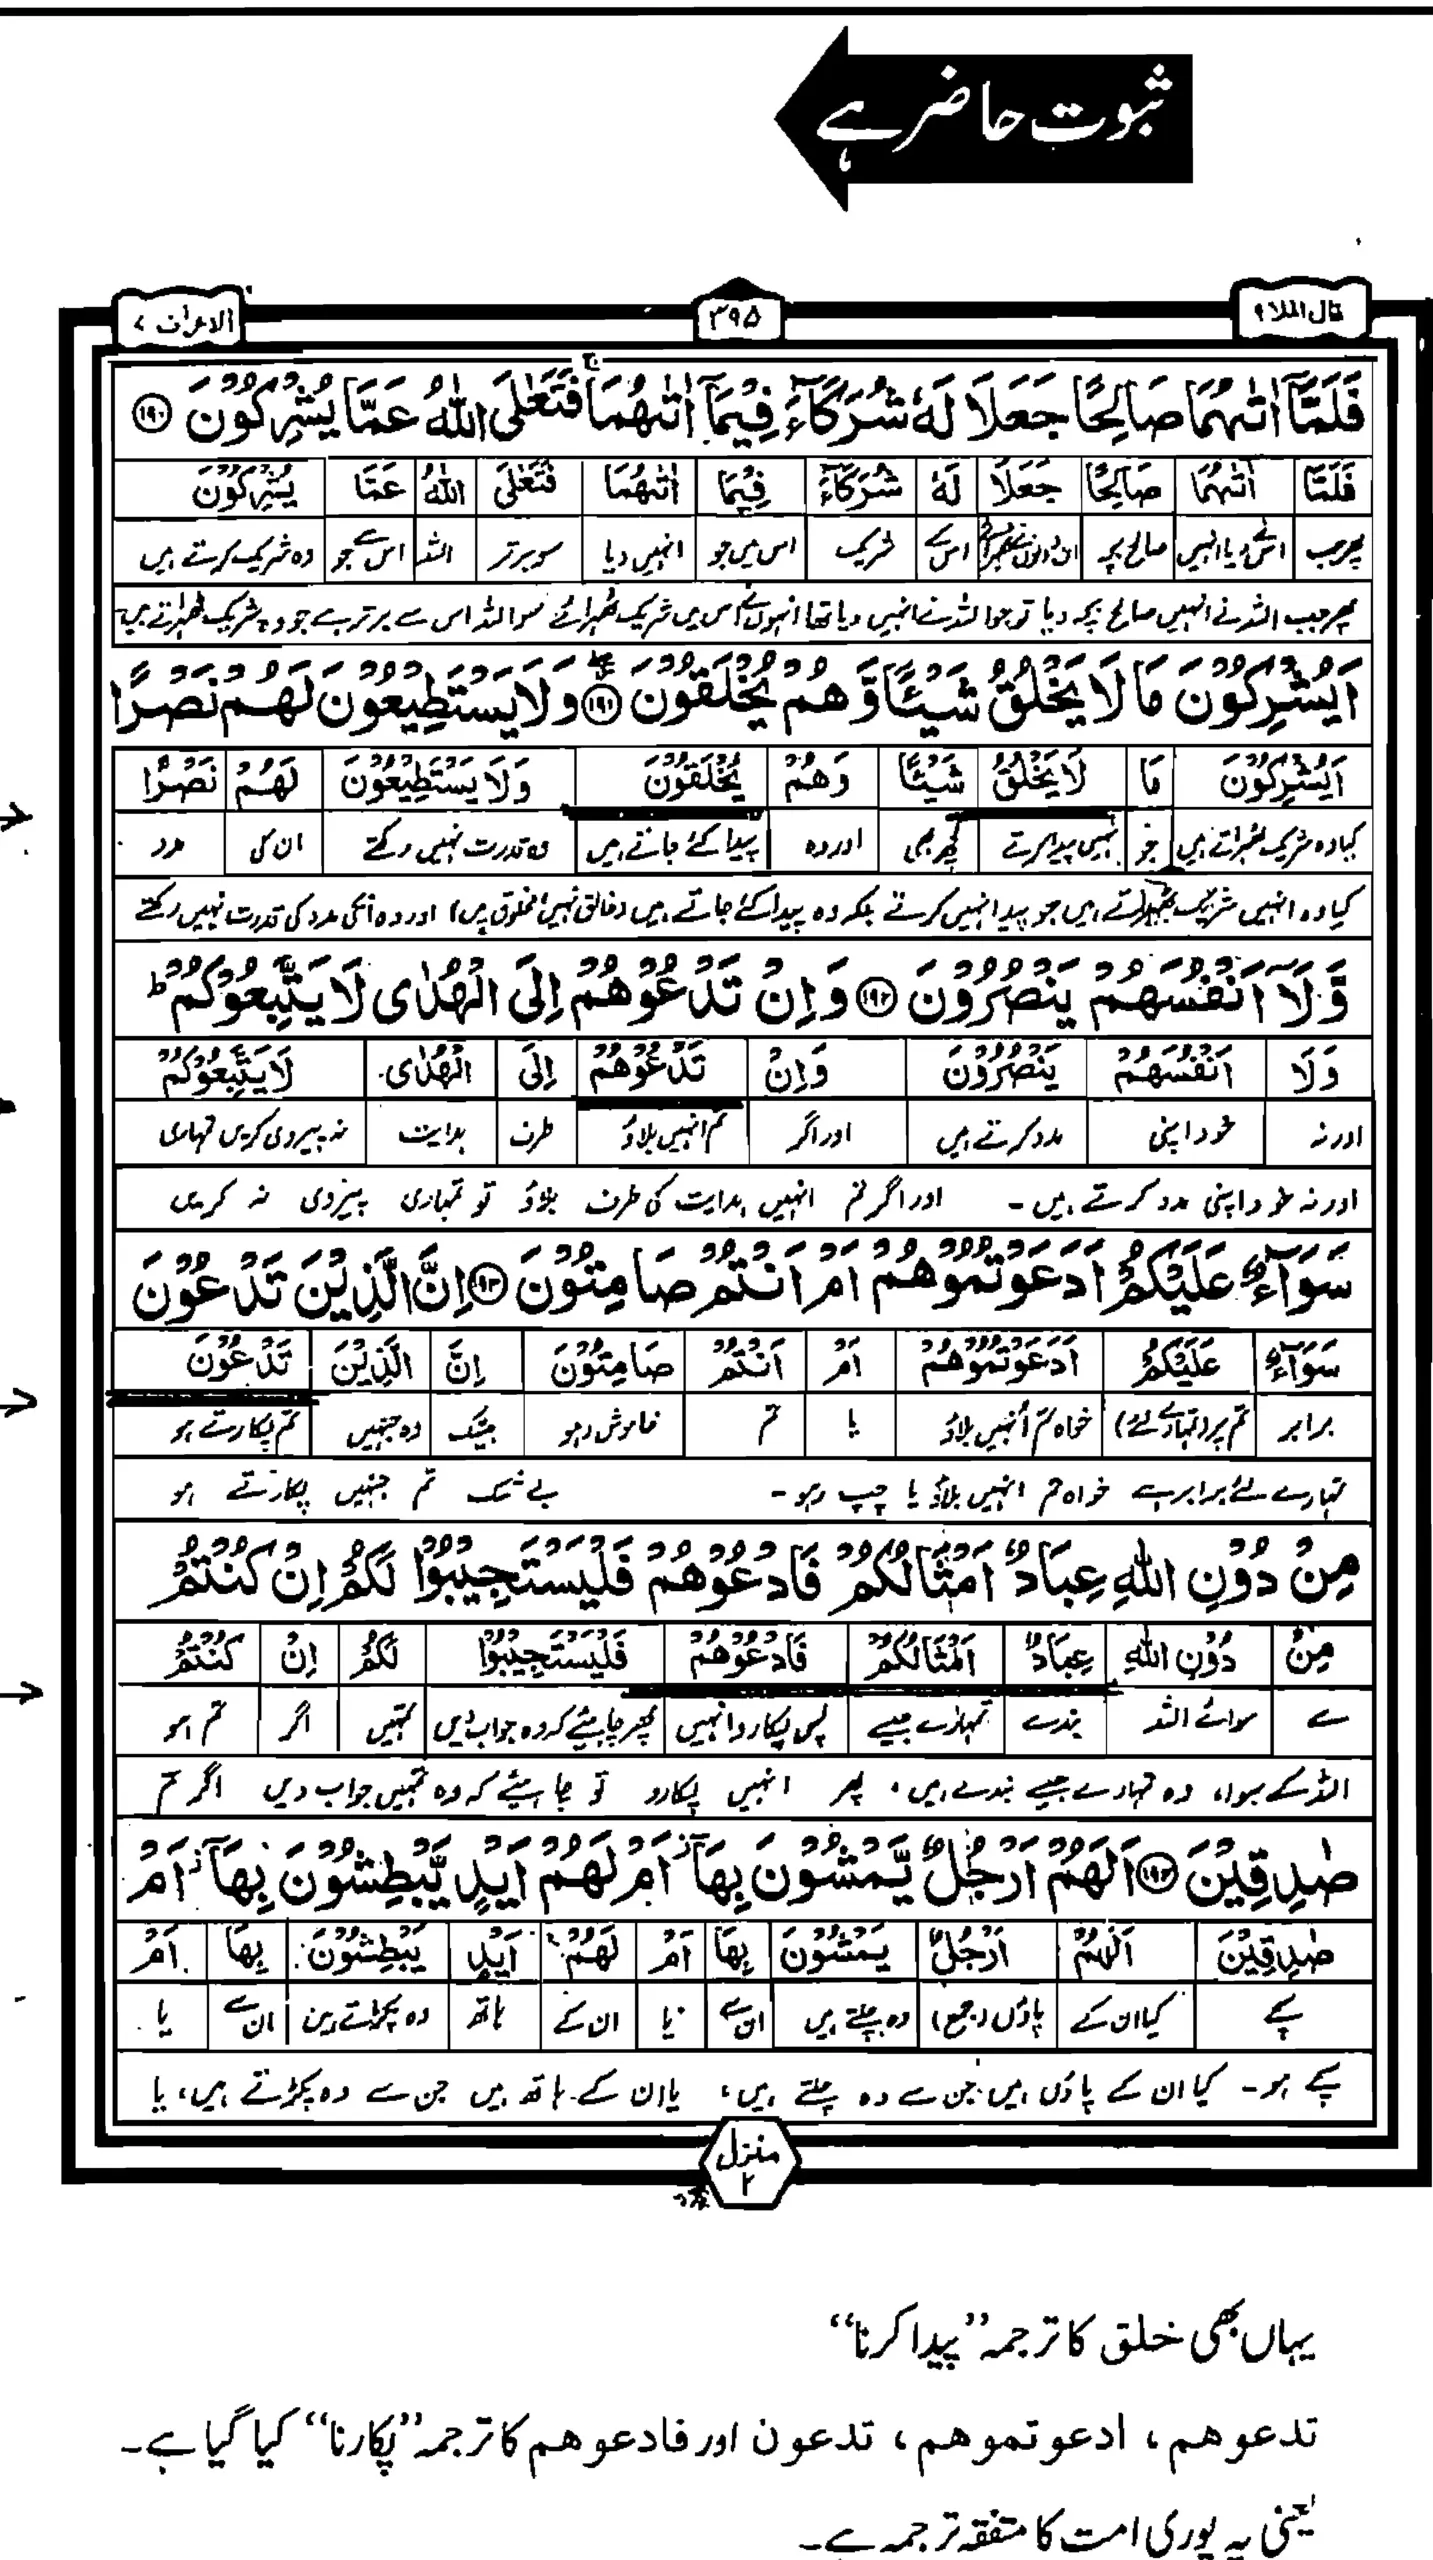 ثبوت حاضر ہے
قال الملا ۹
۳۹۵
الاعراف ۷
فَلَمَّآ اٰتٰىهُمَا صَالِحًا جَعَلَا لَهٗ شُرَكَآءَ فِيْمَآ اٰتٰىهُمَا ۚ فَتَعٰلَى اللّٰهُ عَمَّا يُشْرِكُوْنَ ﴿۱۹۰﴾
فَلَمَّآ اٰتٰىهُمَا صَالِحًا جَعَلَا لَهٗ شُرَكَآءَ فِيْمَا اٰتٰىهُمَا فَتَعٰلَى اللّٰهُ عَمَّا يُشْرِكُوْنَ
پھر جب اس نے دیا انہیں صالح بچہ ان دونوں نے ٹھہرائے اس کے شریک اس میں جو انہیں دیا سو برتر اللہ اس سے جو وہ شریک کرتے ہیں
پھر جب اللہ نے انہیں صالح بچہ دیا تو جو اللہ نے انہیں دیا تھا انہوں نے اس میں شریک ٹھہرائے سو اللہ اس سے برتر ہے جو وہ شریک ٹھہراتے ہیں
اَيُشْرِكُوْنَ مَا لَا يَخْلُقُ شَيْـًٔا وَّهُمْ يُخْلَقُوْنَ ﴿۱۹۱﴾ وَلَا يَسْتَطِيْعُوْنَ لَهُمْ نَصْرًا
اَيُشْرِكُوْنَ مَا لَا يَخْلُقُ شَيْـًٔا وَهُمْ يُخْلَقُوْنَ وَلَا يَسْتَطِيْعُوْنَ لَهُمْ نَصْرًا
کیا وہ شریک ٹھہراتے ہیں جو نہیں پیدا کرتے کچھ بھی اور وہ پیدا کئے جاتے ہیں وہ قدرت نہیں رکھتے ان کی مدد
کیا وہ انہیں شریک ٹھہراتے ہیں جو پیدا نہیں کرتے بلکہ وہ پیدا کئے جاتے ہیں (خالق نہیں مخلوق ہیں) اور وہ انکی مدد کی قدرت نہیں رکھتے
وَّلَآ اَنْفُسَهُمْ يَنْصُرُوْنَ ﴿۱۹۲﴾ وَاِنْ تَدْعُوْهُمْ اِلَى الْهُدٰى لَا يَتَّبِعُوْكُمْ ؕ
وَلَا اَنْفُسَهُمْ يَنْصُرُوْنَ وَاِنْ تَدْعُوْهُمْ اِلَى الْهُدٰى لَا يَتَّبِعُوْكُمْ
اور نہ خود اپنی مدد کرتے ہیں اور اگر تم انہیں بلاؤ طرف ہدایت نہ پیروی کریں تمہاری
اور نہ خود اپنی مدد کرتے ہیں۔ اور اگر تم انہیں ہدایت کی طرف بلاؤ تو تمہاری پیروی نہ کریں
سَوَآءٌ عَلَيْكُمْ اَدَعَوْتُمُوْهُمْ اَمْ اَنْتُمْ صَامِتُوْنَ ﴿۱۹۳﴾ اِنَّ الَّذِيْنَ تَدْعُوْنَ
سَوَآءٌ عَلَيْكُمْ اَدَعَوْتُمُوْهُمْ اَمْ اَنْتُمْ صَامِتُوْنَ اِنَّ الَّذِيْنَ تَدْعُوْنَ
برابر تم پر (تمہارے لئے) خواہ تم انہیں بلاؤ یا تم خاموش رہو بیشک وہ جنہیں تم پکارتے ہو
تمہارے لئے برابر ہے خواہ تم انہیں بلاؤ یا چپ رہو۔ بے شک تم جنہیں پکارتے ہو
مِنْ دُوْنِ اللّٰهِ عِبَادٌ اَمْثَالُكُمْ فَادْعُوْهُمْ فَلْيَسْتَجِيْبُوْا لَكُمْ اِنْ كُنْتُمْ
مِنْ دُوْنِ اللّٰهِ عِبَادٌ اَمْثَالُكُمْ فَادْعُوْهُمْ فَلْيَسْتَجِيْبُوْا لَكُمْ اِنْ كُنْتُمْ
سے سوائے اللہ بندے تمہارے جیسے پس پکارو انہیں پھر چاہیئے کہ وہ جواب دیں تمہیں اگر تم ہو
اللہ کے سوا، وہ تمہارے جیسے بندے ہیں، پھر انہیں پکارو تو چاہیئے کہ وہ تمہیں جواب دیں اگر تم
صٰدِقِيْنَ ﴿۱۹۴﴾ اَلَهُمْ اَرْجُلٌ يَّمْشُوْنَ بِهَآ ۡ اَمْ لَهُمْ اَيْدٍ يَّبْطِشُوْنَ بِهَآ ۡ اَمْ
صٰدِقِيْنَ اَلَهُمْ اَرْجُلٌ يَمْشُوْنَ بِهَا اَمْ لَهُمْ اَيْدٍ يَبْطِشُوْنَ بِهَا اَمْ
سچے کیا ان کے پاؤں (جمع) وہ چلتے ہیں ان سے یا ان کے ہاتھ وہ پکڑتے ہیں ان سے یا
سچے ہو۔ کیا ان کے پاؤں ہیں جن سے وہ چلتے ہیں، یا ان کے ہاتھ ہیں جن سے وہ پکڑتے ہیں، یا
منزل ۲
یہاں بھی خلق کا ترجمہ ”پیدا کرنا“
تدعوھم، ادعوتموھم، تدعون اور فادعوھم کا ترجمہ ”پکارنا“ کیا گیا ہے۔
یعنی یہ پوری امت کا متفقہ ترجمہ ہے۔